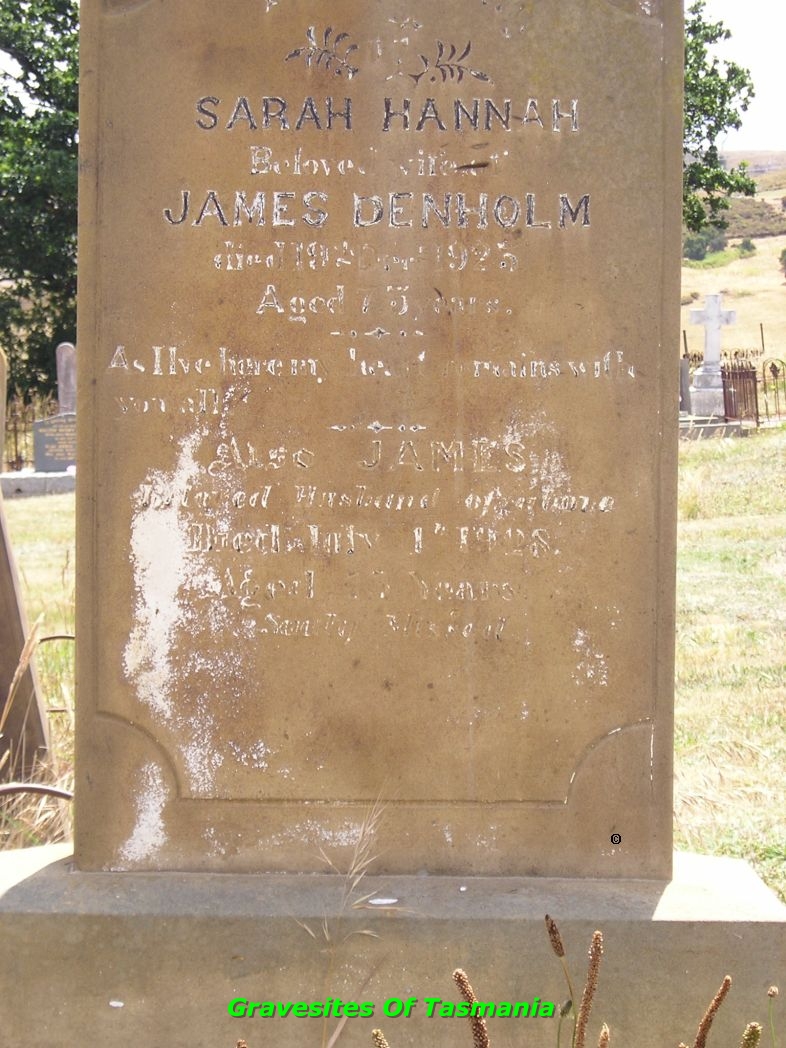 SARAH HANNAH
Beloved wife of
JAMES DENHOLM
died 19th 1925
Aged 75 years.
As I live here my heart remains with
you all
Also JAMES
Beloved Husband of above
Died July 1st 1928.
Aged years
Sadly Missed
©
Gravesites Of Tasmania